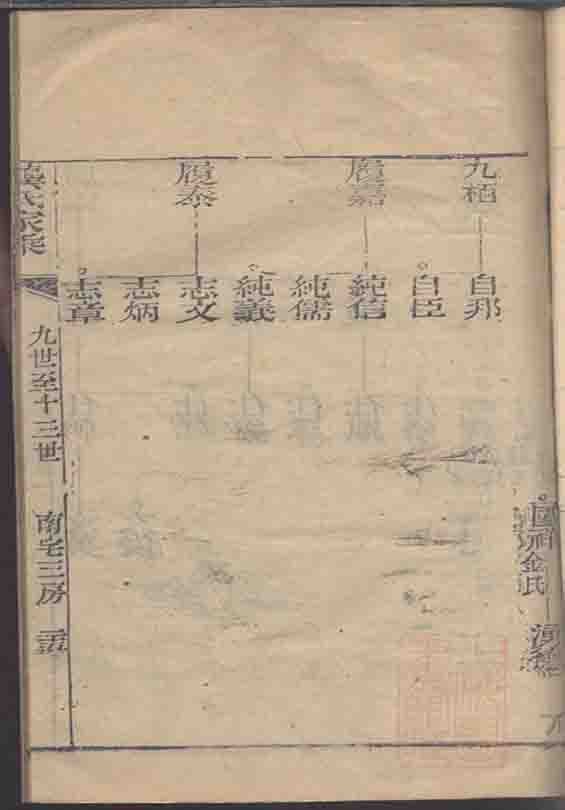 九栢
履嘉
履泰
自邦
自臣
純信
純儒
純義
志文
志炳
志章
氏家乘
九世至十三世
南宅三房
金氏